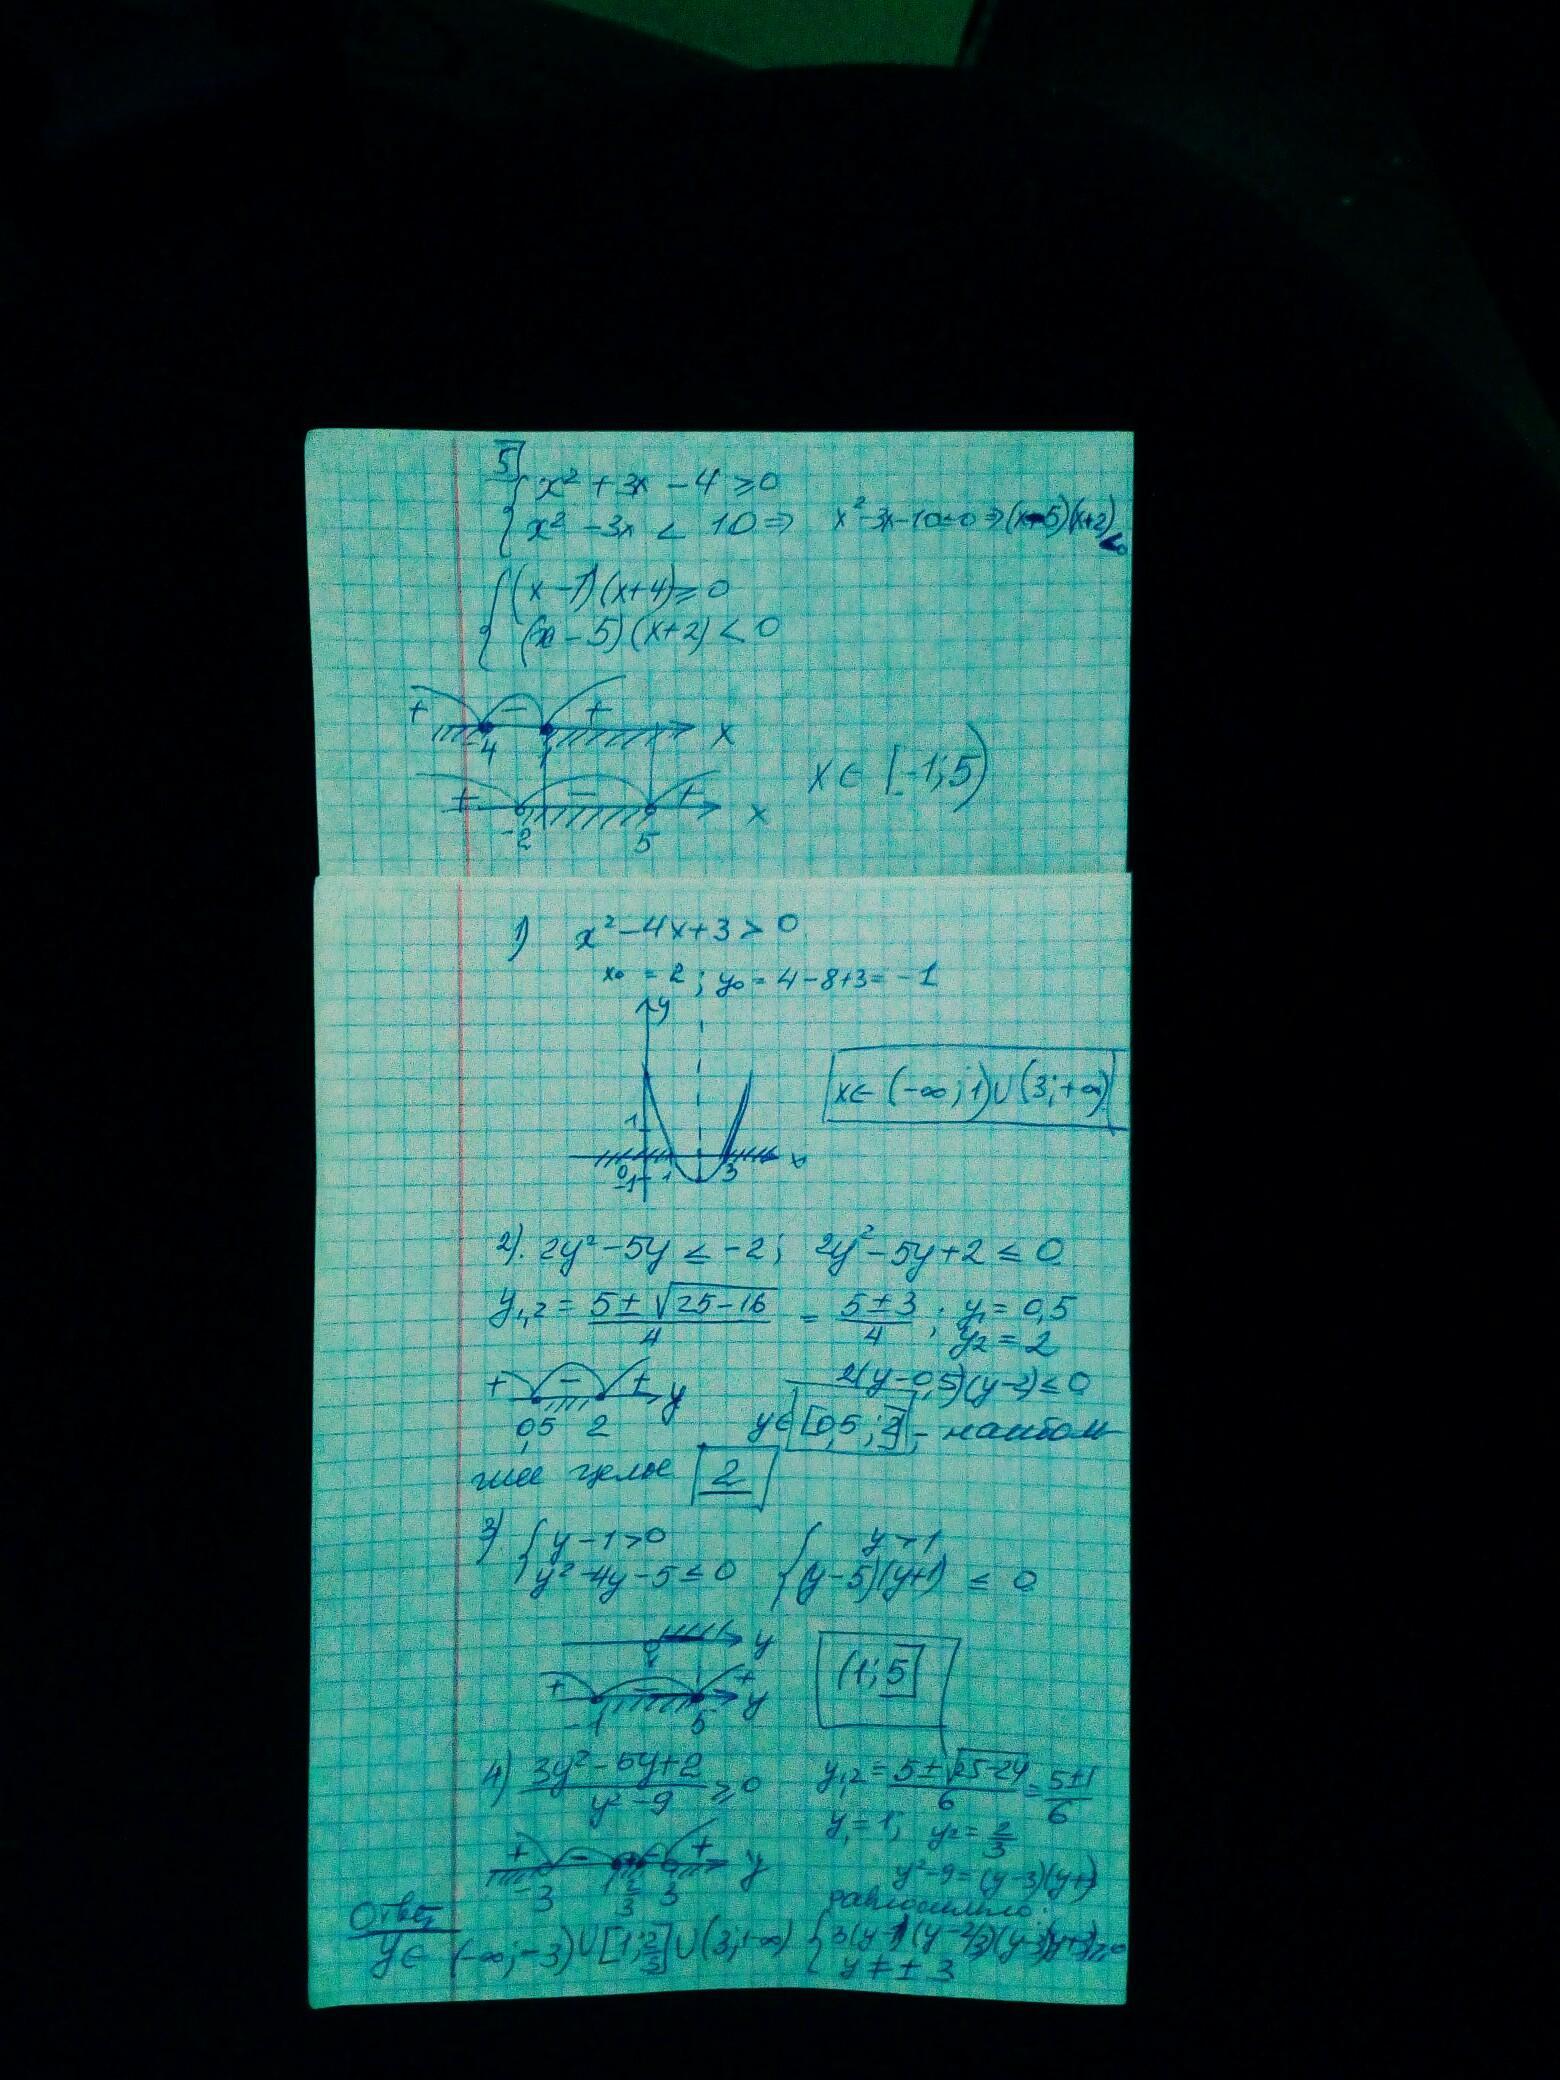 5
x² + 3x - 4 ≥ 0
x² - 3x < 10 ⇒ x² - 3x - 10 < 0 ⇒ (x-5)(x+2) < 0
(x-1)(x+4) ≥ 0
(x-5)(x+2) < 0
+ - + x
-4 1
x ∈ [-1; 5)
+ - + x
-2 5
1) x² - 4x + 3 > 0
x₀ = 2; y₀ = 4 - 8 + 3 = -1
y
x ∈ (-∞; 1) ∪ (3; +∞)
1
0 1 3 x
-1
2). 2y² - 5y ≤ -2; 2y² - 5y + 2 ≤ 0
y₁,₂ = (5 ± √(25-16))/4 = (5 ± 3)/4; y₁ = 0,5
y₂ = 2
+ - + y 2(y-0,5)(y-2) ≤ 0
0,5 2 y ∈ [0,5; 2] - наиболь
шее целое 2
3) y - 1 > 0 y > 1
y² - 4y - 5 ≤ 0 (y-5)(y+1) ≤ 0
1 y
(1; 5]
+ - + y
-1 5
4) (3y² - 5y + 2)/(y² - 9) ≥ 0 y₁,₂ = (5 ± √(25-24))/6 = (5 ± 1)/6
y₁ = 1; y₂ = 2/3
+ - + - + y
y² - 9 = (y-3)(y+3)
-3 1 2/3 3
равносильно:
Ответ
y ∈ (-∞; -3) ∪ [1; 2/3] ∪ (3; +∞) 3(y-1)(y-2/3)(y-3)(y+3) ≥ 0
y ≠ ± 3